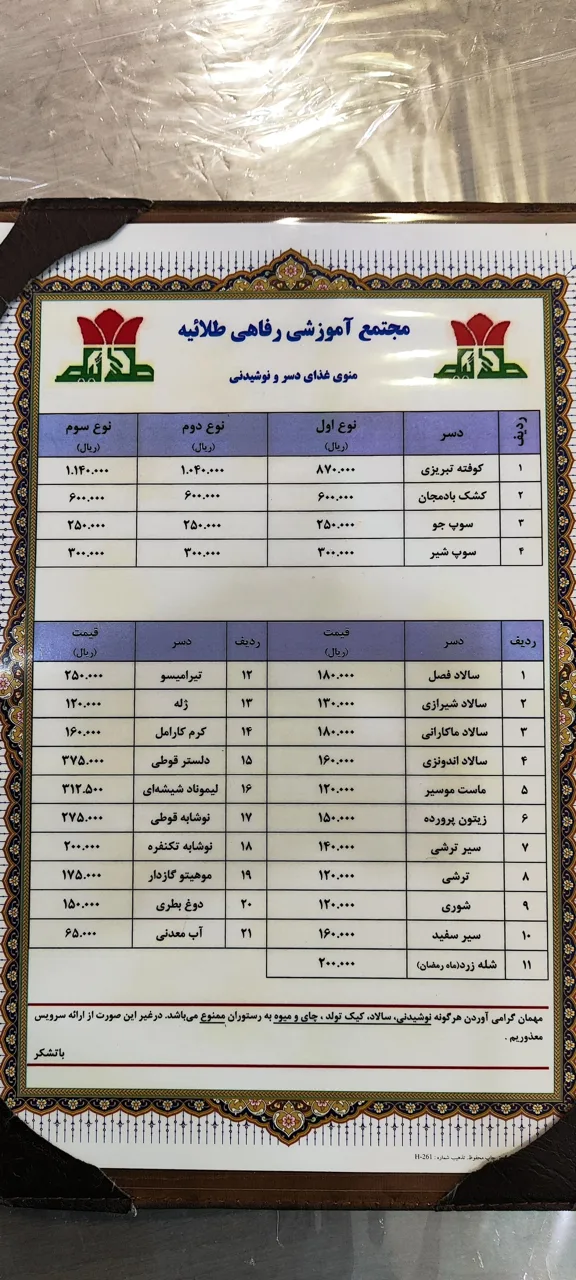 مجتمع آموزشی رفاهی طلائیه
منوی غذای دسر و نوشیدنی
ردیف دسر نوع اول (ریال) نوع دوم (ریال) نوع سوم (ریال)
۱ کوفته تبریزی ۸۷۰.۰۰۰ ۱.۰۴۰.۰۰۰ ۱.۱۴۰.۰۰۰
۲ کشک بادمجان ۶۰۰.۰۰۰ ۶۰۰.۰۰۰ ۶۰۰.۰۰۰
۳ سوپ جو ۲۵۰.۰۰۰ ۲۵۰.۰۰۰ ۲۵۰.۰۰۰
۴ سوپ شیر ۳۰۰.۰۰۰ ۳۰۰.۰۰۰ ۳۰۰.۰۰۰
ردیف دسر قیمت (ریال) ردیف دسر قیمت (ریال)
۱ سالاد فصل ۱۸۰.۰۰۰ ۱۲ تیرامیسو ۲۵۰.۰۰۰
۲ سالاد شیرازی ۱۳۰.۰۰۰ ۱۳ ژله ۱۲۰.۰۰۰
۳ سالاد ماکارانی ۱۸۰.۰۰۰ ۱۴ کرم کارامل ۱۶۰.۰۰۰
۴ سالاد اندونزی ۱۶۰.۰۰۰ ۱۵ دلستر قوطی ۳۷۵.۰۰۰
۵ ماست موسیر ۱۲۰.۰۰۰ ۱۶ لیموناد شیشه‌ای ۳۱۲.۵۰۰
۶ زیتون پرورده ۱۵۰.۰۰۰ ۱۷ نوشابه قوطی ۲۷۵.۰۰۰
۷ سیر ترشی ۱۴۰.۰۰۰ ۱۸ نوشابه تکنفره ۲۰۰.۰۰۰
۸ ترشی ۱۲۰.۰۰۰ ۱۹ موهیتو گازدار ۱۷۵.۰۰۰
۹ شوری ۱۲۰.۰۰۰ ۲۰ دوغ بطری ۱۵۰.۰۰۰
۱۰ سیر سفید ۱۶۰.۰۰۰ ۲۱ آب معدنی ۶۵.۰۰۰
۱۱ شله زرد(ماه رمضان) ۲۰۰.۰۰۰
مهمان گرامی آوردن هرگونه نوشیدنی، سالاد، کیک تولد ، چای و میوه به رستوران ممنوع می‌باشد. درغیر این صورت از ارائه سرویس
معذوریم .
باتشکر
محفوظ. تذهیب شماره : H-261